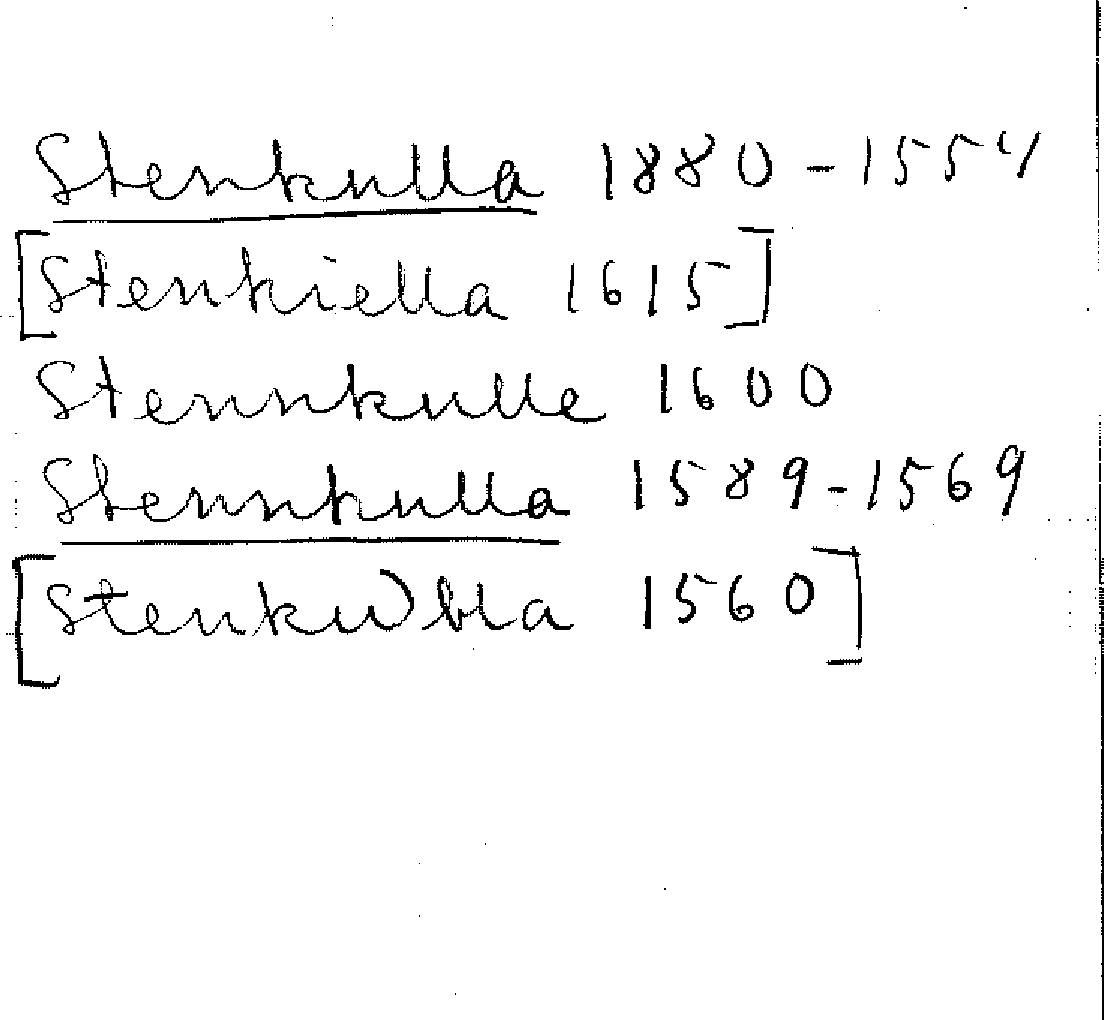 Stenkulla 1880-1554
[Stenkiella 1615]
Stennkulle 1600
Stennkulla 1589-1569
[Stenku)bla 1560]